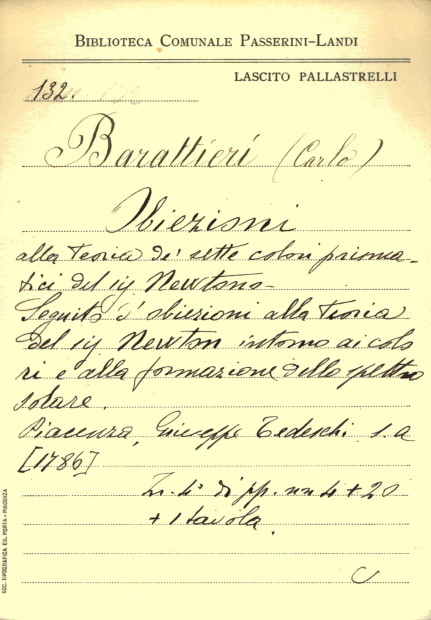 BIBLIOTECA COMUNALE PASSERINI-LANDI
LASCITO PALLASTRELLI
132.
Barattieri (Carlo)
Obiezioni
alla Teoria de' sette colori prisma-
tici del sig Newtono-
Seguito d'obiezioni alla Teoria
del sig Newton intorno ai colo
ri e alla formazione dello spettro
solare.
Piacenza, Giuseppe Tedeschi s.a
[1786]
In 4° di pp. nn 4 + 20
+ 1 tavola.
C
SOC. TIPOGRAFICA ED. PORTA - PIACENZA